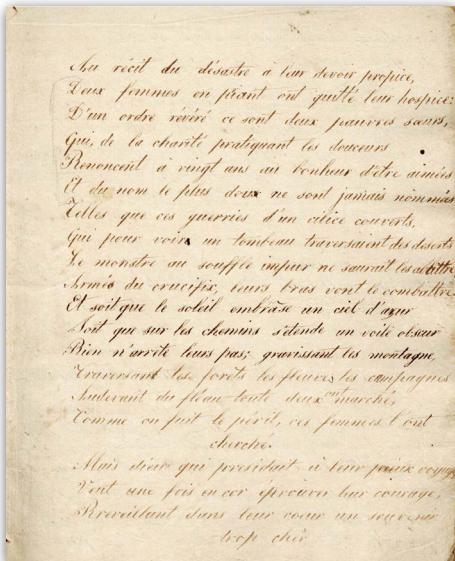 Au récit du désastre à leur devoir propice,
Deux femmes en priant ont quitté leur hospice:
D'un ordre révéré ce sont deux pauvres sœurs,
Qui, de la charité pratiquant les douceurs
Renoncent à vingt ans au bonheur d'être aimées
Et du nom le plus doux ne sont jamais nommées
Telles que ces guerriers d'un cilice couverts,
Qui pour voir un tombeau traversaient des déserts
Le monstre au souffle impur ne saurait les abattre
Armés du crucifix, leurs bras vont le combattre
Et soit que le soleil embrâse un ciel d'azur
Soit que sur les chemins s'étende un voile obscur
Rien n'arrête leurs pas; gravissant les montagne
Traversant les forêts les fleuves les campagnes
Audevant du fléau toute deux ont marché,
Comme on fuit le péril, ces femmes l'ont
cherché.
Mais dieu qui présidait à leur pieux voyage
Veut une fois encor éprouver leur courage,
Reveillant dans leur coeur un souvenir
trop cher